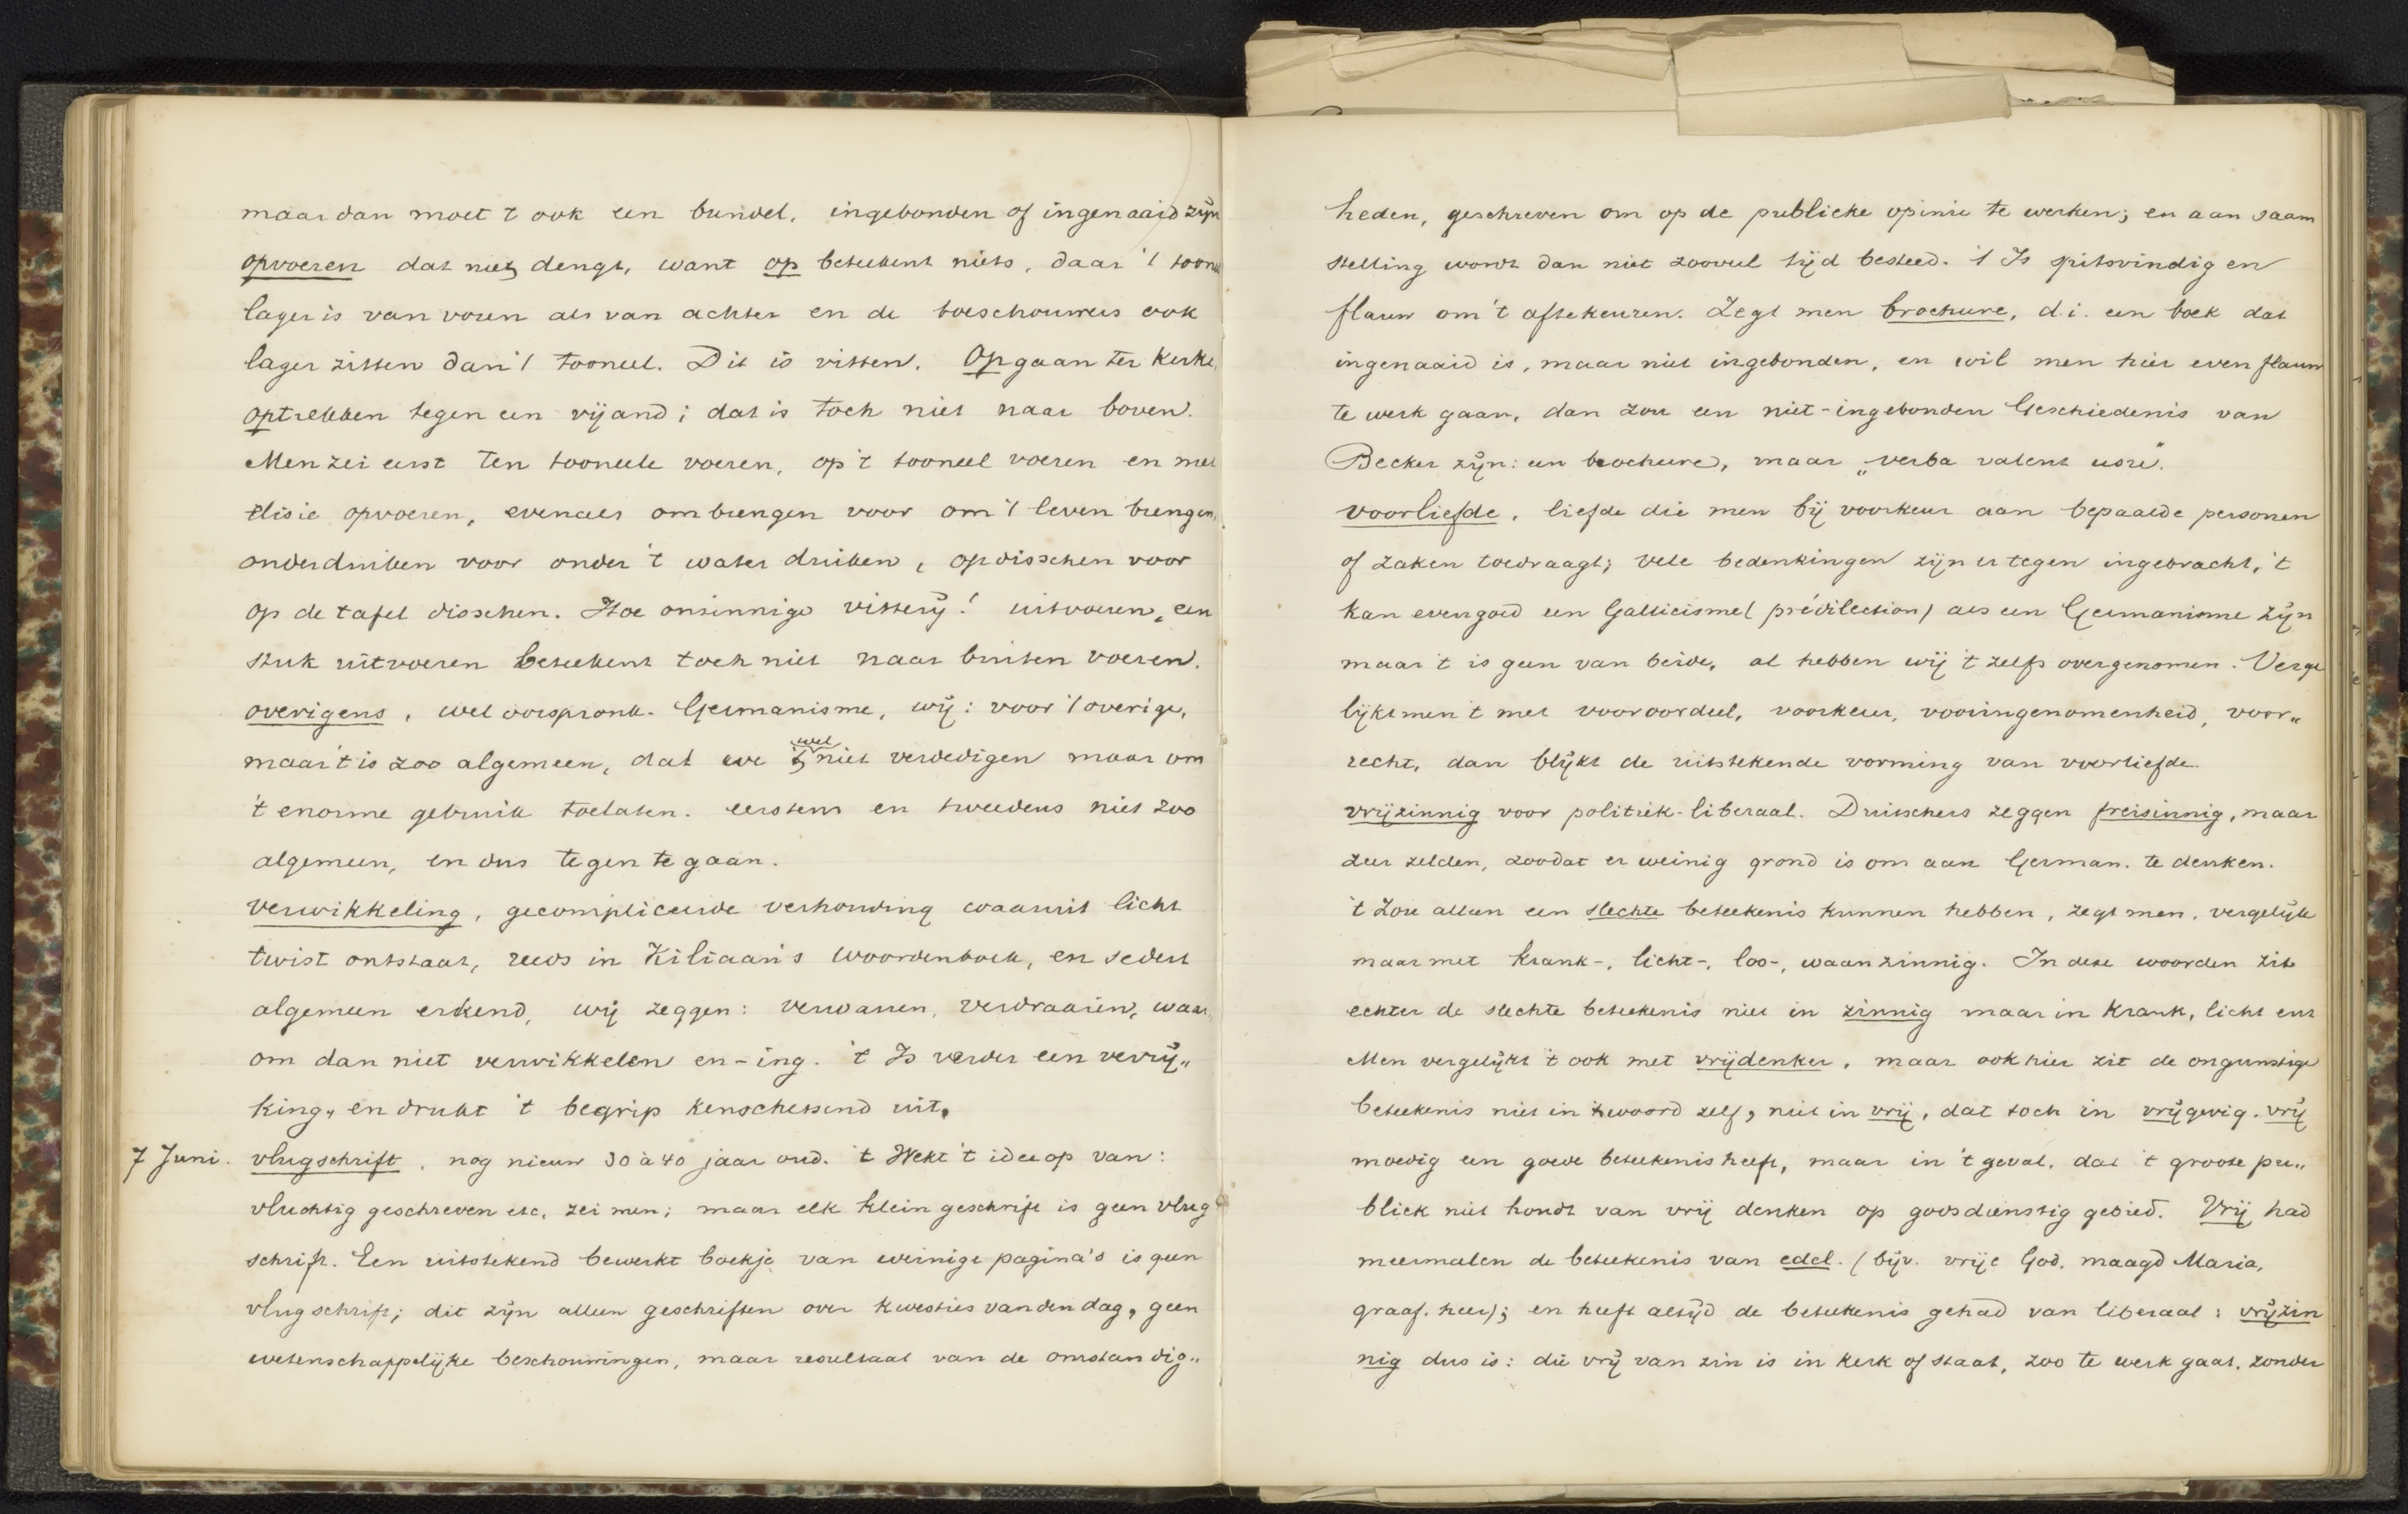 maar dan moet 't ook een bundel, ingebonden of ingenaaid zijn
opvoeren dat niet dengt, want op beteekent niets, daar 't toon
lager is van voren als van achter en de toeschouwers ook
lager zitten dan 't tooneel. Dit is vitten. Opgaan ter kerke,
optrekken tegen een vijand; dat is toch niet naar boven.
Men zei eerst ten tooneele voeren, op 't tooneel voeren en met
elisie opvoeren, evenals ombrengen voor om 't leven brengen,
onderduiken voor onder 't water duiken, opdisschen voor
op de tafel disschen. Hoe onzinnige vitterij! uitvoeren, een
stuk uitvoeren beteekent toch niet naar buiten voeren.
overigens, wel oorspronk. Germanisme, wij: voor 't overige,
maar 't is zoo algemeen, dat we 't wel niet verdedigen maar om
't enorme gebruik toelaten. eerstens en tweedens niet zoo
algemeen, en dus tegen te gaan.
verwikkeling, gecompliceerde verhouding waaruit licht
twist ontstaat, reeds in Kiliaan's woordenboek, en sedert
algemeen erkend, wij zeggen: verwarren, verdraaien, waar,
om dan niet verwikkelen en -ing. 't Is verder een verrij„
king, en drukt 't begrip kenschetsend uit.
7 Juni. vlugschrift, nog nieuw 30 à 40 jaar oud. 't Wekt 't idee op van:
vluchtig geschreven etc, zei men; maar elk klein geschrift is geen vlug
schrift. Een uitstekend bewerkt boekje van weinige pagina's is geen
vlugschrift; dit zijn alleen geschriften over kwesties van den dag, geen
wetenschappelijke beschouwingen, maar resultaat van de omstandig„
heden, geschreven om op de publieke opinie te werken; en aan saam
stelling wordt dan niet zooveel tijd besteed. 't Is spitsvindig en
flauw om 't aftekeuren. Zegt men brochure, d.i. een boek dat
ingenaaid is, maar niet ingebonden, en wil men hier even flauw
te werk gaan, dan zou een niet-ingebonden Geschiedenis van
Becker zijn: een brochure, maar „verba valent usu".
voorliefde, liefde die men bij voorkeur aan bepaalde personen
of zaken toedraagt; vele bedenkingen zijn er tegen ingebracht, 't
kan evengoed een Gallicisme (prédilection) als een Germanisme zijn
maar 't is geen van beide, al hebben wij 't zelfs overgenomen. Verge
lijkt men 't met vooroordeel, voorkeur, vooringenomenheid, voor„
recht, dan blijkt de uitstekende vorming van voorliefde.
vrijzinnig voor politiek-liberaal. Duitschers zeggen freisinnig, maar
zeer zelden, zoodat er weinig grond is om aan German. te denken.
't Zou alleen een slechte beteekenis kunnen hebben, zegt men, vergelijk
maar met krank-, licht-, loo-, waanzinnig. In deze woorden zit
echter de slechte beteekenis niet in zinnig maar in krank, licht enz
Men vergelijkt 't ook met vrijdenker, maar ook hier zit de ongunstige
beteekenis niet in 't woord zelf, niet in vrij, dat toch in vrijgevig. vrij
moedig een goede beteekenis heeft, maar in 't geval, dat 't groote pu„
bliek niet houdt van vrij denken op godsdienstig gebied. Vrij had
meermalen de beteekenis van edel. (bijv. vrije God, maagd Maria,
graaf, heer); en heeft altijd de beteekenis gehad van liberaal: vrijzin
nig dus is: die vrij van zin is in kerk of staat, zoo te werk gaat, zonder